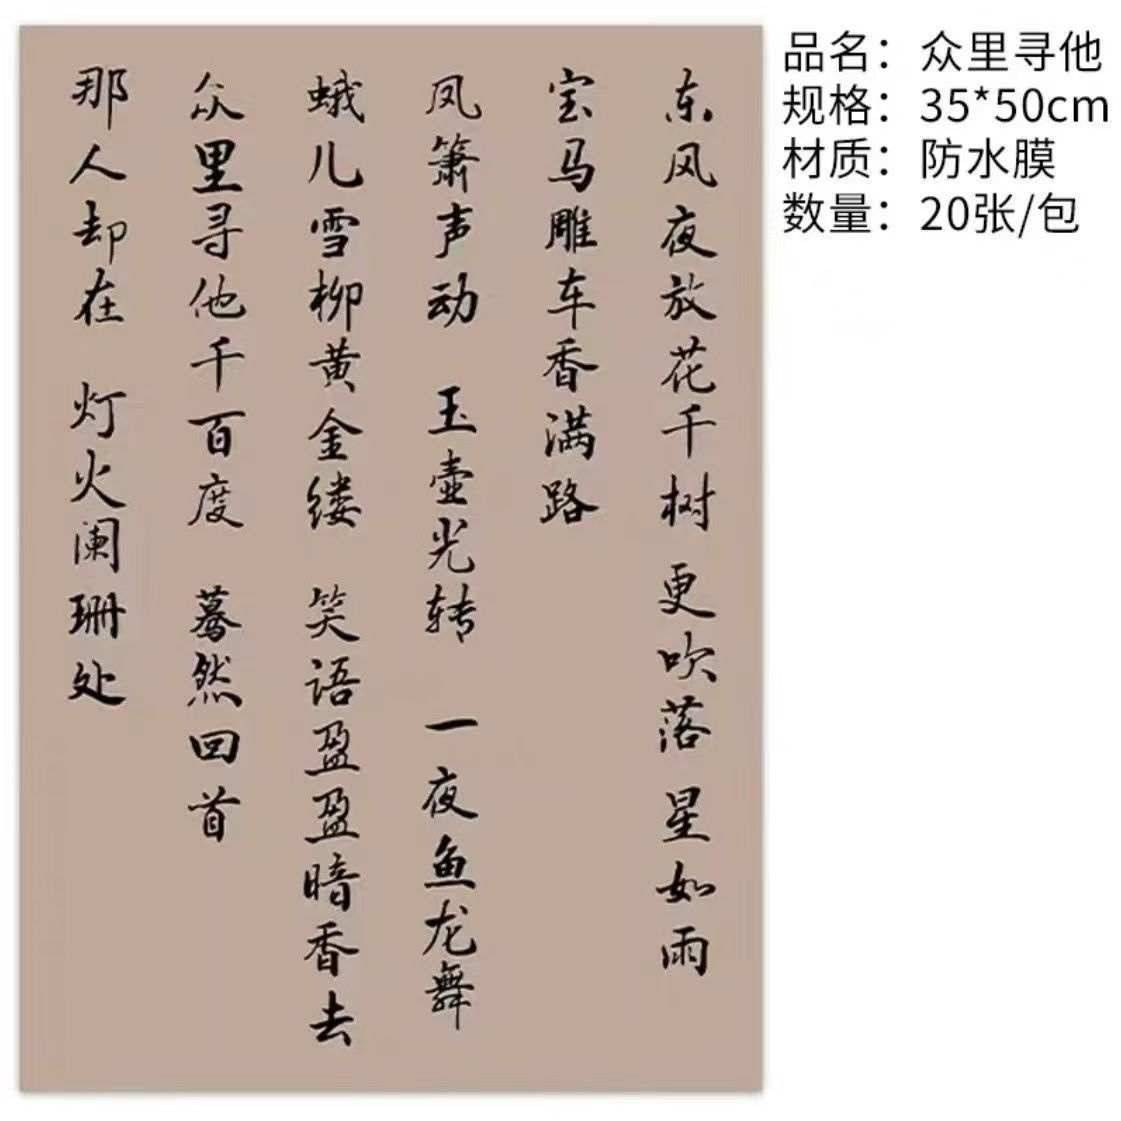 东风夜放花千树 更吹落 星如雨
宝马雕车香满路
凤箫声动 玉壶光转 一夜鱼龙舞
蛾儿雪柳黄金缕 笑语盈盈暗香去
众里寻他千百度 蓦然回首
那人却在 灯火阑珊处
品名：众里寻他
规格：35*50cm
材质：防水膜
数量：20张/包